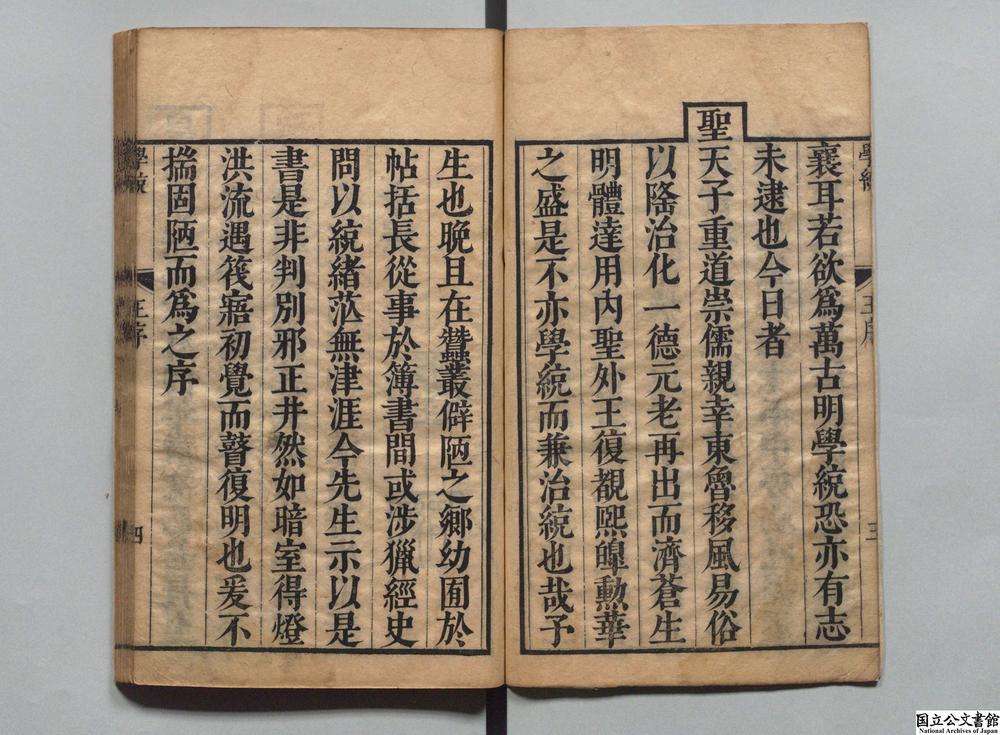 襄耳若欲爲萬古明學統恐亦有志
未逮也今日者
聖天子重道崇儒親幸東魯移風易俗
以隆治化一德元老再出而濟蒼生
明體達用內聖外王復覩熙皥勲華
之盛是不亦學統而兼治統也哉予
生也晚且在蠶叢僻陋之鄉幼囿於
帖括長從事於簿書間或涉獵經史
問以統緒茫無津涯今先生示以是
書是非判別邪正井然如暗室得燈
洪流遇筏寤初覺而瞽復明也爰不
揣固陋而爲之序
學統
王序
三
學統
王序
四
国立公文書館
National Archives of Japan